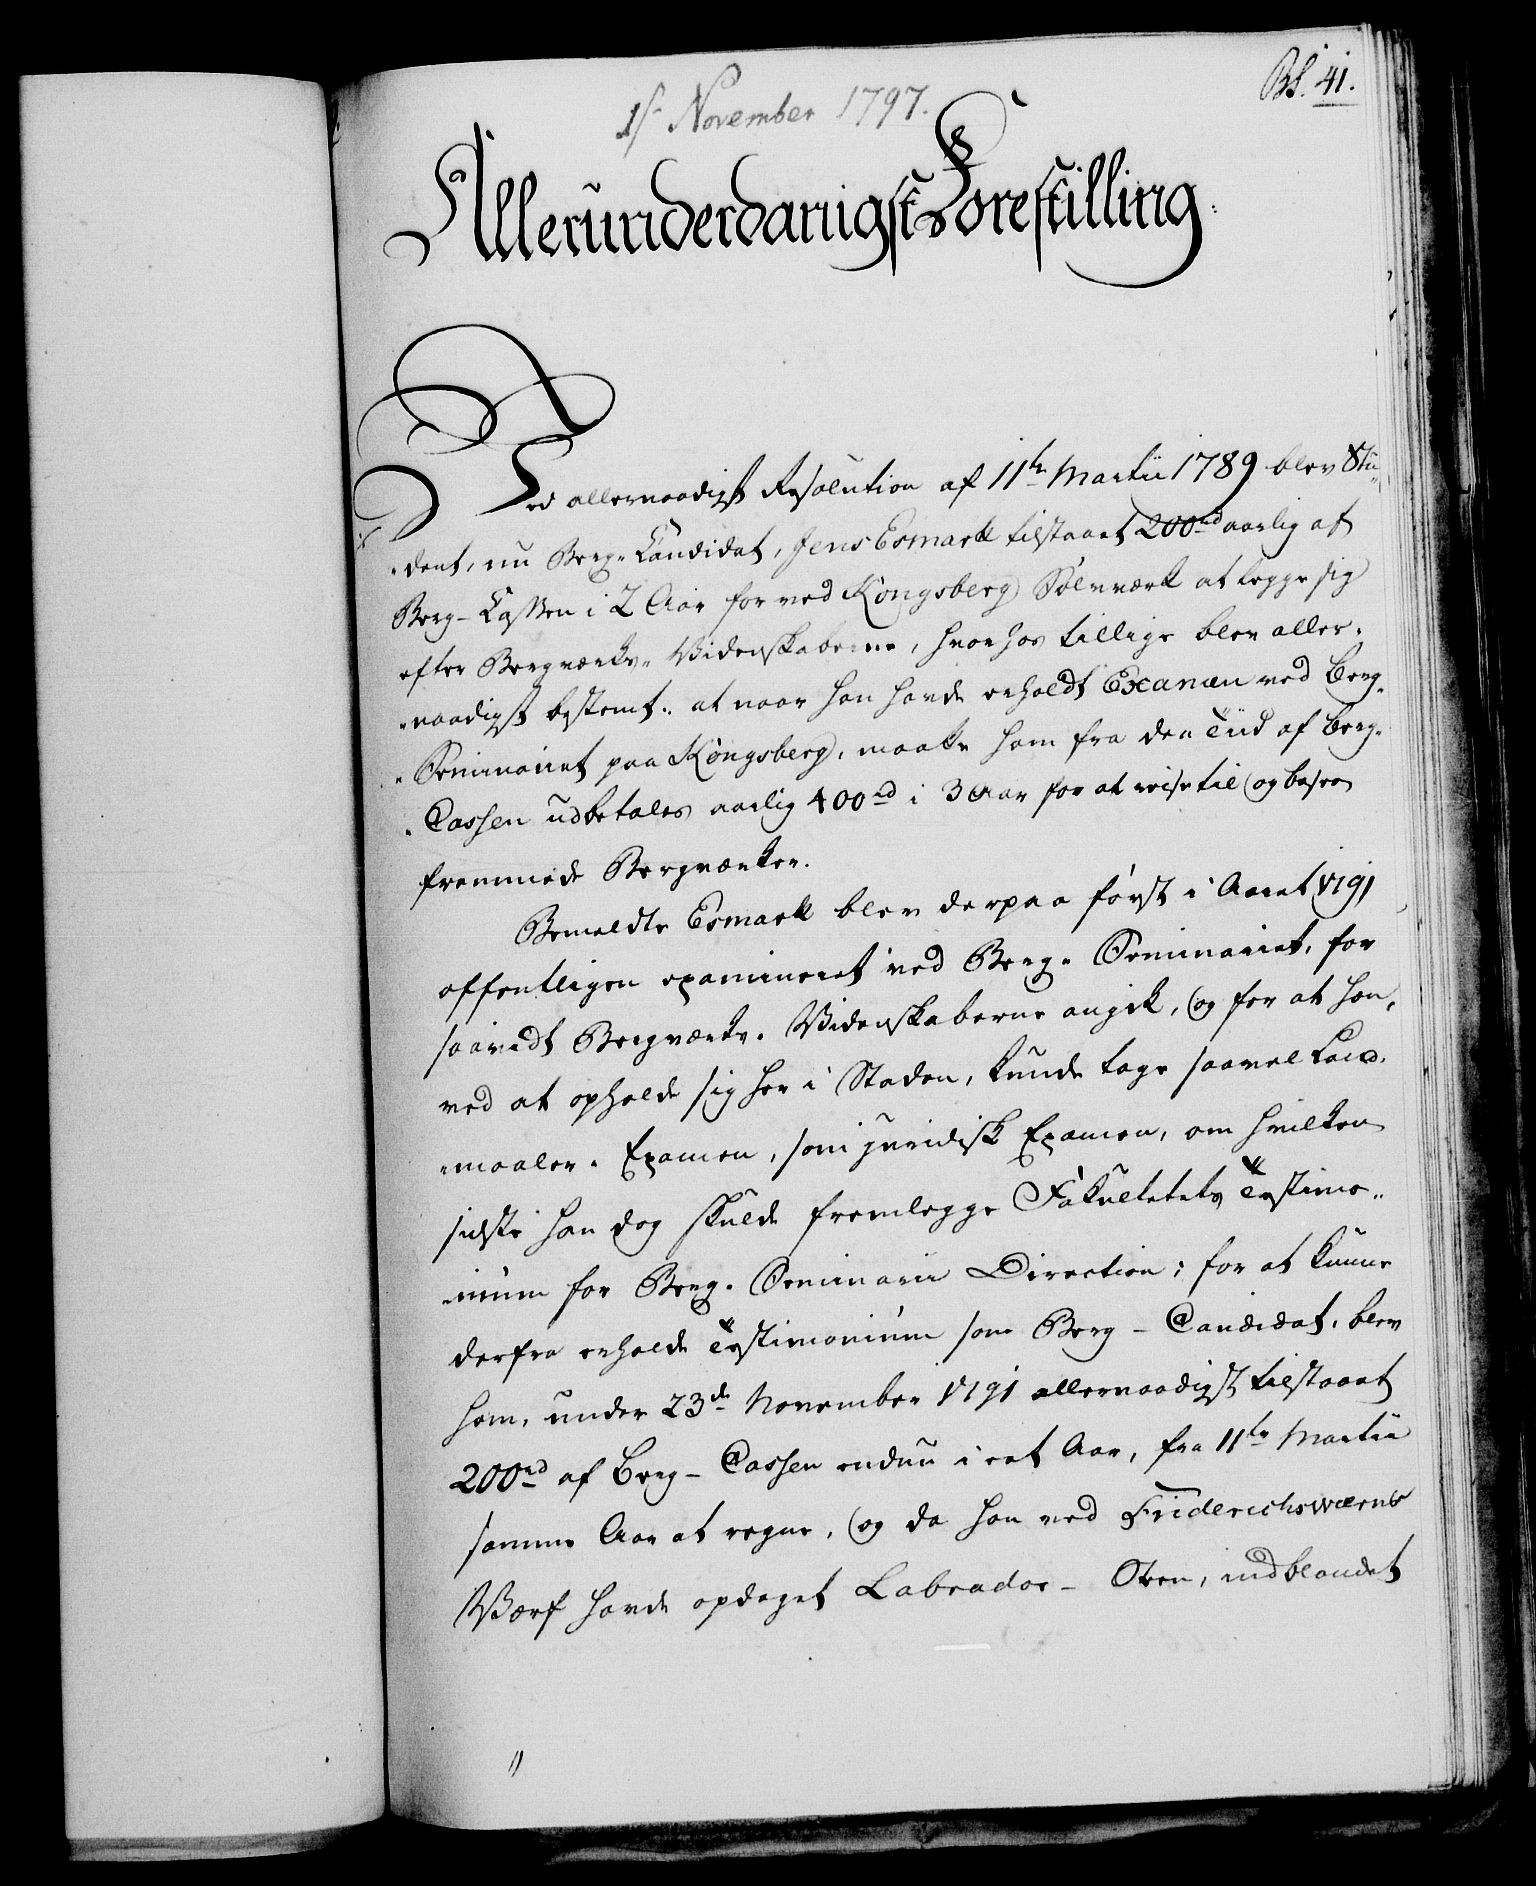 Bs. 41.
1st November 1797.
Allerunderdanigst Forestilling.
Ved allernaadigst Resolution af 11te Martii 1789 blev Stu„
„dent, nu Berg-Candidat, Jens Esmark tilstaaet 200rd aarlig af
Berg-Cassen i 2 Aar for ved Kongsberg Sølvværk at legge sig
efter Bergværks-Videnskaberne, hvorhos tillige blev aller„
„naadigst bestemt: at naar han havde erholdt Examen ved Berg„
„Seminariet paa Kongsberg, maatte ham fra den Tiid af Berg„
„Cassen udbetales aarlig 400rd i 3 Aar for at reise til og besee
fremmede Bergværker.
Bemeldte Esmark blev derpaa først i Aaret 1791
offentligen examineret ved Berg-Seminariet, for
saavidt Bergværks-Videnskaberne angik, og for at han,
ved at opholde sig her i Staden, kunde tage saavel Land„
„maaler-Examen, som juridisk Examen, om hvilken
sidste han dog skulde fremlegge Fakultetets Testimo„
„nium for Berg-Seminarii Direction; for at kunne
derfra erholde Testimonium som Berg-Candidat, blev
ham, under 23de November 1791 allernaadigst tilstaaet
200rd af Berg-Cassen endnu i eet Aar, fra 11te Martii
samme Aar at regne, og da han ved Friderichswærns
Værf havde opdaget Labrador-Steen, indblandet